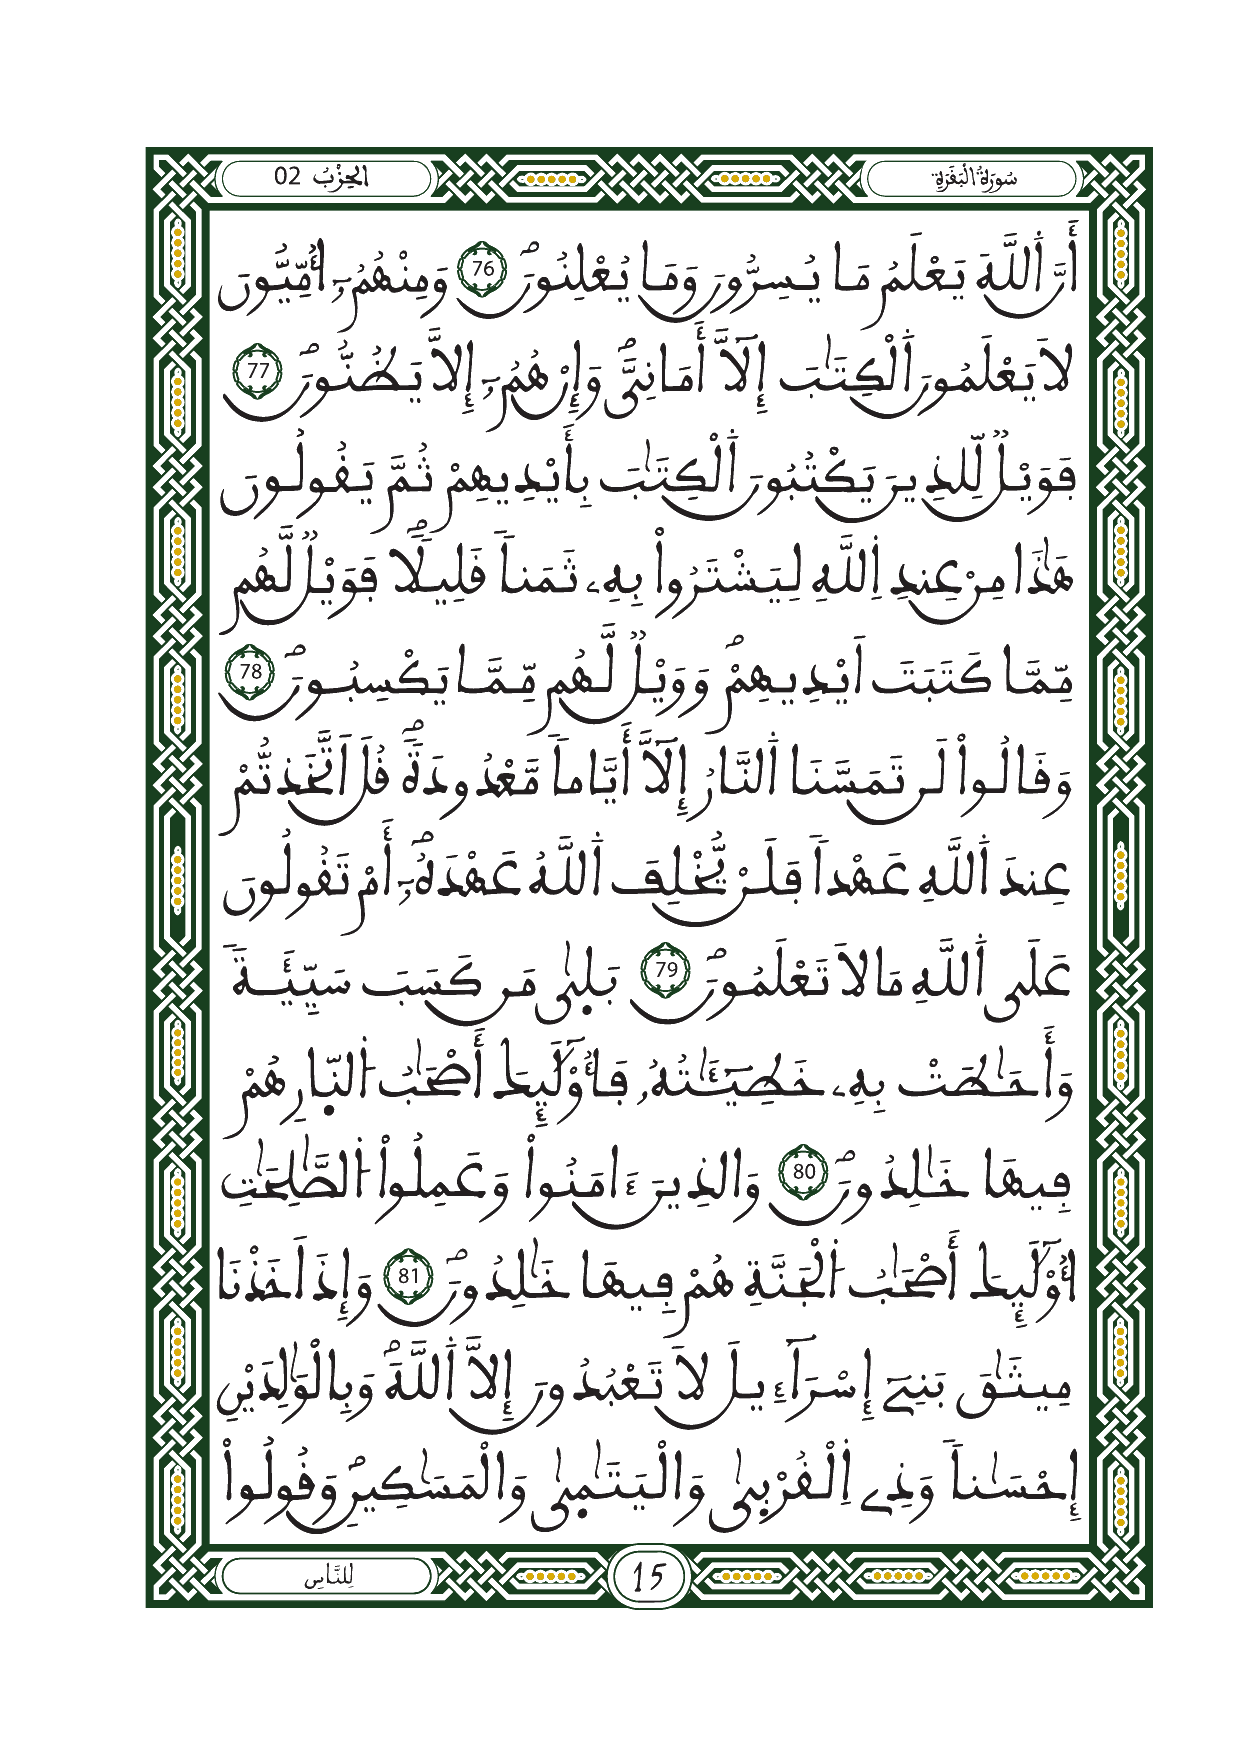 سُورَةُ الْبَقَرَةِ
الْحِزْبُ 02
أَنَّ اَ۬للَّهَ يَعْلَمُ مَا يُسِرُّونَ وَمَا يُعْلِنُونَۖ 76 وَمِنْهُمُۥٓ أُمِّيُّونَ
لَا يَعْلَمُونَ اَ۬لْكِتَٰبَ إِلَّآ أَمَانِيَّۖ وَإِنْ هُمُۥٓ إِلَّا يَظُنُّونَۖ 77
فَوَيْلٞ لِّلذِينَ يَكْتُبُونَ اَ۬لْكِتَٰبَ بِأَيْدِيهِمْ ثُمَّ يَقُولُونَ
هَٰذَا مِنْ عِندِ اِ۬للَّهِ لِيَشْتَرُواْ بِهِۦ ثَمَناٗ قَلِيلاٗۖ فَوَيْلٞ لَّهُم
مِّمَّا كَتَبَتَ اَيْدِيهِمْۖ وَوَيْلٞ لَّهُم مِّمَّا يَكْسِبُونَۖ 78
وَقَالُواْ لَن تَمَسَّنَا اَ۬لنَّارُ إِلَّآ أَيَّاماٗ مَّعْدُودَةٗۖ قُلَ اَتَّخَذتُّمْ
عِندَ اَ۬للَّهِ عَهْداٗ فَلَنْ يُّخْلِفَ اَ۬للَّهُ عَهْدَهُۥٓۖ أَمْ تَقُولُونَ
عَلَى اَ۬للَّهِ مَا لَا تَعْلَمُونَۖ 79 بَلٜىٰ مَن كَسَبَ سَيِّئَةٗ
وَأَحَٰطَتْ بِهِۦ خَطِيٓـَٰٔتُهُۥ فَأُوْلَٰٓئِكَ أَصْحَٰبُ اُ۬لنّ۪ارِ هُمْ
فِيهَا خَٰلِدُونَۖ 80 وَالذِينَ ءَامَنُواْ وَعَمِلُواْ اُ۬لصَّٰلِحَٰتِ
أُوْلَٰٓئِكَ أَصْحَٰبُ اُ۬لْجَنَّةِ هُمْ فِيهَا خَٰلِدُونَۖ 81 وَإِذَ اَخَذْنَا
مِيثَٰقَ بَنِےٓ إِسْرَآءِيلَ لَا تَعْبُدُونَ إِلَّا اَ۬للَّهَۖ وَبِالْوَٰلِدَيْنِ
إِحْسَٰناٗ وَذِے اِ۬لْقُرْبٜىٰ وَالْيَتَٰمٜىٰ وَالْمَسَٰكِينِۖ وَقُولُواْ
لِلنَّاسِ
15